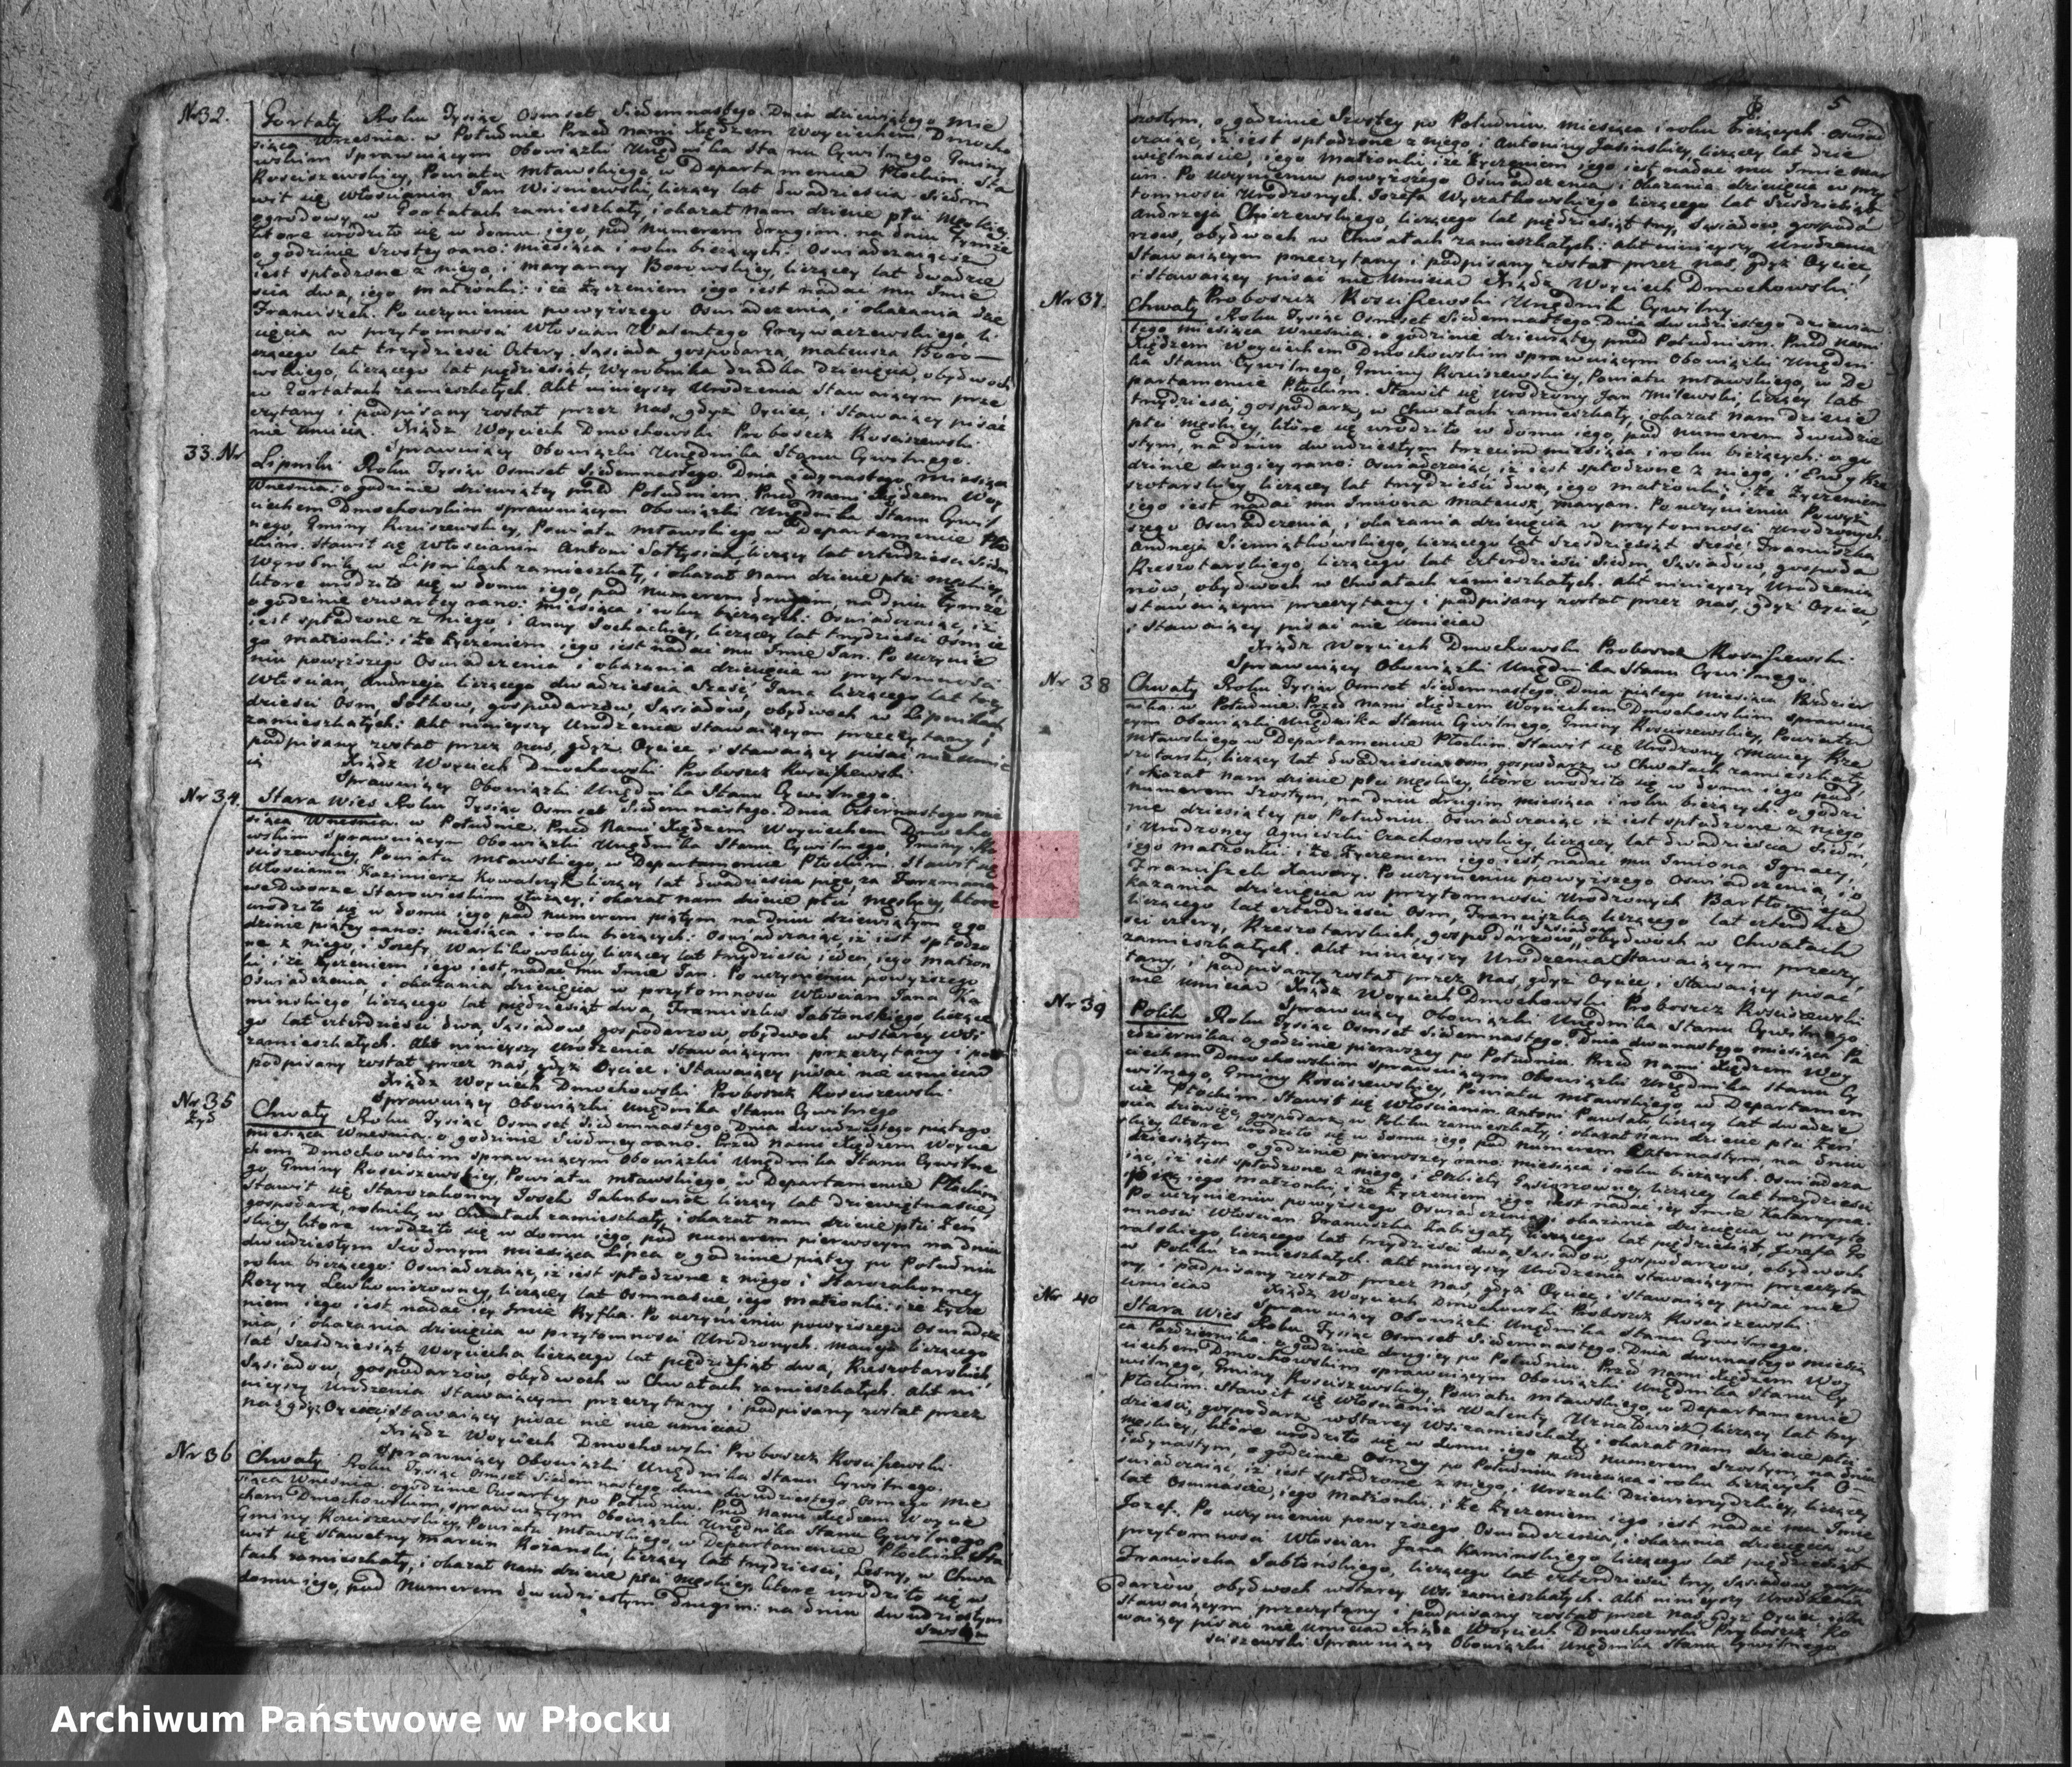 Nr 32.
Gortaty Roku Tysiąc Osmset Siedemnastego. Dnia dziewiątego mie
siąca Września. w Południe Przed nami Xiędzem Woyciechem Dmocho
wskim Sprawuiącym Obowiązki Urzędnika Stanu Cywilnego Gminy
Kosciszewskiey, Powiatu Mławskiego w Departamencie Płockim. Sta
wił się Włoscianin Jan Wisniewski, liczący lat dwadziescia Siedm
ogrodowy, w Gortatach zamieszkały, i okazał Nam dziecie płci Męskiey,
ktore urodziło się w domu iego, pod Numerem drugim. na dniu tymże
o godzinie Szostey rano: miesiąca i roku bieżących. Oswiadczaiąc iż
iest spłodzone z niego, i Maryanny Borowskiey, liczącey lat dwadzie
scia dwa, iego małżonki: i że życzeniem iego iest nadać mu Imie
Franciszek. Po uczynieniu powyższego Oswiadczenia, i okazania dzie
cięcia w przytomnosci Włoscian Walentego Grzywaczewskiego, li
czącego lat trzydziesci Cztery. Sąsiada gospodarza, Mateusza Boro
wskiego, liczącego lat pięćdziesiąt, Wyrobnika dziadka dziecięcia, obydwoch
w Gortatach zamieszkałych. Akt ninieyszy Urodzenia Stawaiącym prze
czytany i podpisany został przez Nas, gdyż Oyciec, i Stawaiący pisać
nie umieią. Xiądz Woyciech Dmochowski Proboszcz Kosciszewski
Sprawuiący Obowiązki Urzędnika Stanu Cywilnego.
33. Nr
Lipniki Roku Tysiąc Osmset Siedemnastego. Dnia iedynastego miesiąca
Września, o godzinie dziewiątey przed Południem. Przed Nami Xiędzem Woy
ciechem Dmochowskim sprawuiącym Obowiązki Urzędnika Stanu Cywil
nego, Gminy Kosciszewskiey, Powiatu Mławskiego w Departamencie Pło
ckim. Stawił się Włoscianin Antoni Sołtysiak, liczący lat czterdziesci Siedm
Wyrobnik, w Lipnikach zamieszkały, i okazał Nam dziecie płci męskiey,
ktore urodziło się w domu iego, pod Numerem drugim, na dniu tymże
o godzinie czwartey rano: miesiąca i roku bieżących: Oswiadczaiąc, iż
iest spłodzone z niego, i Anny Sochackiey, liczącey lat trzydziesci Osm ie
go małżonki: i że życzeniem iego iest nadać mu Imie Jan. Po uczynie
niu powyższego Oswiadczenia i okazania dziecięcia w przytomnosci
Włoscian, Andrzeja liczącego dwadziescia Sześć, Jana liczącego lat trzy
dziesci Osm, Sołtkow, gospodarzow, Sąsiadow, obydwoch w Lipnikach
zamieszkałych: Akt ninieyszy Urodzenia stawaiącym przeczytany i
podpisany został przez Nas, gdyż Oyciec i Stawaiący pisać nie umie
ią Xiądz Woyciech Dmochowski Proboszcz Kosciszewski
Sprawuiący Obowiązki Urzędnika Stanu Cywilnego.
Nr 34.
Stara Wies Roku Tysiąc Osmset Siedemnastego. Dnia Czternastego mie
siąca Września. w Południe. Przed Nami Xiędzem Woyciechem Dmocho
wskim Sprawuiącym Obowiązki Urzędnika Stanu Cywilnego, Gminy Ko
sciszewskiey, Powiatu Mławskiego, w Departamencie Płockim. Stawił się
Włoscianin Kazimierz Kowalczyk liczący lat dwadziescia pięć, za Forzmana
we dworze Starowieskim służący, i okazał nam dziecie płci męskiey, ktore
urodziło się w domu iego, pod numerem piątym, na dniu dziewiątym o go
dzinie piątey rano: miesiąca i roku bieżących: Oswiadczaiąc, iż iest spłodzo
ne z niego, i Jozefy Warlikowskiey, liczącey lat trzydziesci ieden, iego małżon
ki i że życzeniem iego iest, nadać mu Imie Jan. Po uczynieniu powyższego
Oswiadczenia, i okazania dziecięcia w przytomnosci Włoscian Jana Ka
minskiego, liczącego lat pięćdziesiąt dwa, Franciszka Jabłonskiego liczące
go lat czterdziesci dwa, Sąsiadow gospodarzow, obydwoch w Starey Wsi
zamieszkałych. Akt ninieyszy Urodzenia Stawaiącym przeczytany i
podpisany został przez Nas, gdyż Oyciec i Stawaiący pisać nie umieią
Xiądz Woyciech Dmochowski Proboszcz Kosciszewski
Sprawuiący Obowiązki Urzędnika Stanu Cywilnego
Nr 35
Żyd
Chwały Roku Tysiąc Osmset Siedemnastego. Dnia dwudziestego piątego
miesiąca Września. o godzinie Siodmey rano. Przed Nami Xiędzem Woycie
chem Dmochowskim sprawuiącym Obowiązki Urzędnika Stanu Cywilne
go, Gminy Kosciszewskiey, Powiatu Mławskiego, w Departamencie Płockim
Stawił się Starozakonny Josek Jakubowicz liczący lat dziewiętnascie,
gospodarz, rolnik, w Chwałach zamieszkały, i okazał nam dziecie płci Żeń
skiey ktore urodziło się w domu iego, pod numerem pierwszym na dniu
dwudziestym Siodmym miesiąca Lipca o godzinie piątey po Południu
roku bieżącego: Oswiadczaiąc, iż iest spłodzone z niego i Starozakonney
Lewkowiczowney, liczącey lat Osmnascie, iego małżonki: i że życze
niem iego iest nadać iey Imie Ryfka. Po uczynieniu powyższego Oswiadcze
nia, i okazania dziecięcia w przytomnosci Urodzonych. Macieja liczącego
lat Szesdziesiąt, Woyciecha liczącego lat pięćdziesiąt dwa, Rzeszotarskich
Sąsiadow, gospodarzow, obydwoch w Chwałach zamieszkałych. Akt ni
nieyszy Urodzenia Stawaiącym przeczytany i podpisany został przez
nas gdyż Oyciec i Stawaiący pisać nie umieią
Xiądz Woyciech Dmochowski Proboszcz Kosciszewski
Sprawuiący Obowiązki Urzędnika Stanu Cywilnego.
Nr 36
Chwały Roku Tysiąc Osmset Siedemnastego dnia dwudziestego Osmego Mie
siąca Września. o godzinie Czwartey po Południu. Przed Nami Xiędzem Woycie
chem Dmochowskim, sprawuiącym Obowiązki Urzędnika Stanu Cywilnego
Gminy Kosciszewskiey, Powiatu Mławskiego, w Departamencie Płockim Sta
wił się Sławetny Marcin Rozanski, liczący lat trzydziesci, Lesny, w Chwa
łach zamieszkały, i okazał Nam dziecie płci męskiey, ktore urodziło się w
domu iego, pod Numerem dwudziestym drugim: na dniu dwudziestym
Szostym
5
szostym, o godzinie Szostey po Południu. miesiąca i roku bieżących. Oswiad
czaiąc, iż iest spłodzone z niego, i Antoniny Jasinskiey, liczącey lat dzie
więtnascie, iego małżonki i że życzeniem iego iest, nadać mu Imie Mar
cin. Po uczynieniu powyższego Oswiadczenia i okazania dziecięcia w przy
tomnosci Urodzonych. Jozefa Wyczałkowskiego liczącego lat Szesdziesiąt
Andrzeja Chiczewskiego, liczącego lat pięćdziesiąt trzy, Sąsiadow, gospoda
rzow, obydwoch w Chwałach zamieszkałych: Akt ninieyszy Urodzenia
Stawaiącym przeczytany i podpisany został przez Nas, gdyż Oyciec,
i Stawaiący pisać nie umieią Xiądz Woyciech Dmochowski
Proboszcz Kosciszewski Urzędnik Cywilny
Nr 37.
Chwały Roku Tysiąc Osmset Siedemnastego Dnia dwudziestego dziewią
tego miesiąca Września, o godzinie dziewiątey przed Południem. Przed Nami
Xiędzem Woyciechem Dmochowskim sprawuiącym Obowiązki Urzędni
ka Stanu Cywilnego, Gminy Kosciszewskiey, Powiatu Mławskiego, w De
partamencie Płockim. Stawił się Urodzony Jan Milewski, liczący lat
trzydziesci, gospodarz, w Chwałach zamieszkały, i okazał Nam dziecie
płci męskiey, ktore się urodziło w domu iego, pod numerem dwudzie
stym, na dniu dwudziestym trzecim miesiąca i roku bieżących: o go
dzinie drugiey rano: Oswiadczaiąc, iż iest spłodzone z niego, i Ewy Rze
szotarskiey liczącey lat trzydziesci dwa, iego małżonki, i że życzeniem
iego iest nadać mu Imiona Mateusz, Maryan. Po uczynieniu Powyż
szego Oswiadczenia, i okazania dziecięcia w przytomnosci Urodzonych
Andrzeja Siemiątkowskiego, liczącego lat Szesdziesiąt Sześć, Franciszka
Rzeszotarskiego, liczącego lat czterdziesci Siedm, Sąsiadow, gospoda
rzow, obydwoch w Chwałach zamieszkałych. Akt ninieyszy Urodzenia
stawaiącym przeczytany i podpisany został przez nas, gdyż Oyciec,
i Stawaiący pisać nie umieią
Xiądz Woyciech Dmochowski Proboszcz Kosciszewski
Sprawuiący Obowiązki Urzędnika Stanu Cywilnego.
Nr 38
Chwały Roku Tysiąc Osmset Siedemnastego. Dnia piątego miesiąca Pazdzier
nika. w Południe. Przed Nami Xiędzem Woyciechem Dmochowskim sprawuią
cym Obowiązki Urzędnika Stanu Cywilnego, Gminy Kosciszewskiey, Powiatu
Mławskiego w Departamencie Płockim. Stawił się Urodzony Maciey Rze
szotarski, liczący lat dwadziescia osm gospodarz, w Chwałach zamieszkały,
i okazał nam dziecie płci męskiey, ktore urodziło się w domu iego pod
numerem Szostym, na dniu drugim miesiąca i roku bieżących. o godzi
nie dziesiątey po Południu. Oswiadczaiąc iż iest spłodzone z niego
i Urodzoney Agnieszki Czachorowskiey, liczącey lat dwadziescia Siedm,
iego małżonki: i że życzeniem iego iest, nadać mu Imiona Ignacy,
Franciszek Xawery. Po uczynieniu powyższego Oswiadczenia, i o
kazania dziecięcia w przytomnosci Urodzonych Bartłomieja
liczącego lat czterdziesci Osm, Franciszka liczącego lat czterdzie
sci cztery, Rzeszotarskich, gospodarzow, Sąsiadow, obydwoch w Chwałach
zamieszkałych. Akt ninieyszy Urodzenia Stawaiącym przeczy
tany, i podpisany został przez Nas, gdyż Oyciec i Stawaiący pisać
nie umieią Xiądz Woyciech Dmochowski Proboszcz Kosciszewski
Sprawuiący Obowiązki Urzędnika Stanu Cywilnego.
Nr 39
Polik Roku Tysiąc Osmset Siedemnastego. Dnia dwunastego miesiąca Pa
zdziernika o godzinie pierwszey po Południu. Przed Nami Xiędzem Woy
ciechem Dmochowskim sprawuiącym Obowiązki Urzędnika Stanu Cy
wilnego, Gminy Kosciszewskiey, Powiatu Mławskiego, w Departamen
cie Płockim. Stawił się Włoscianin Antoni Pawlak, liczący lat dwadzie
scia dziewięć, gospodarz w Poliku zamieszkały, i okazał nam dziecie płci Żeń
skiey ktore urodziło się w domu iego, pod numerem Czternastym, na dniu
dziesiątym o godzinie pierwszey rano: miesiąca i roku bieżących. Oswiadcza
iąc, iż iest spłodzone z niego, i Elżbiety Gąsiorowney, liczącey lat trzydziesci
pięć, iego małżonki, i że życzeniem iego iest nadać iey Imie Katarzyna.
Po uczynieniu powyższego Oswiadczenia, i okazania dziecięcia, w przyto
mnosci Włoscian. Franciszka liczącego lat pięćdziesiąt, Jozefa Go
ralskiego, liczącego lat trzydziesci dwa, Sąsiadow, gospodarzow, obydwoch
w Poliku zamieszkałych. Akt ninieyszy Urodzenia stawaiącym przeczyta
ny, i podpisany został przez Nas, gdyż Oyciec, i Stawaiący pisać nie
umieią Xiądz Woyciech Dmochowski Proboszcz Kosciszewski
Sprawuiący Obowiązki Urzędnika Stanu Cywilnego.
Nr 40
Stara Wies Roku Tysiąc Osmset Siedemnastego. Dnia dwunastego miesią
ca Pazdziernika. o godzinie drugiey po Południu. Przed Nami Xiędzem Woy
ciechem Dmochowskim sprawuiącym Obowiązki Urzędnika Stanu Cy
wilnego, Gminy Kosciszewskiey, Powiatu Mławskiego, w Departamencie
Płockim. Stawił się Włoscianin Walenty liczący lat trzy
dziesci, gospodarz w Starey Wsi zamieszkały, i okazał Nam dziecie płci
męskiey, ktore urodziło się w domu iego pod numerem Szostym, na dniu
iedynastym, o godzinie Osmey po Południu miesiąca i roku bieżących O
swiadczaiąc, iż iest spłodzone z niego, i Urszuli liczącey
lat Osmnascie, iego małżonki, i że życzeniem iego iest nadać mu Imie
Jozef. Po uczynieniu powyższego Oswiadczenia, i okazania dziecięcia w
przytomnosci Włoscian Jana Kaminskiego liczącego lat pięćdziesiąt
Franciszka Jabłonskiego, liczącego lat czterdziesci trzy, Sąsiadow, gospo
darzow, obydwoch w Starey Wsi zamieszkałych. Akt ninieyszy Urodzenia
Stawaiącym przeczytany i podpisany został przez Nas, gdyż Oyciec i Sta
waiący pisać nie umieią Xiądz Woyciech Dmochowski Proboszcz Ko
sciszewski Sprawuiący Obowiązki Urzędnika Stanu Cywilnego
Archiwum Państwowe w Płocku